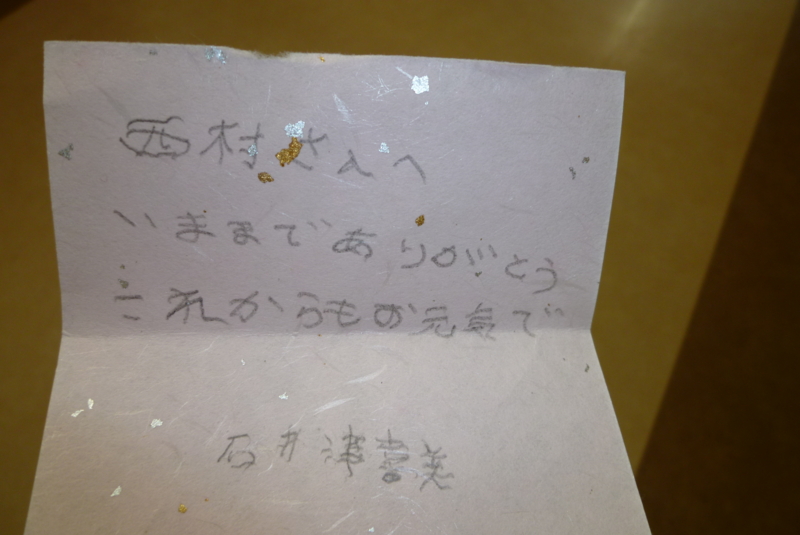 西村さんへ
いままでありがとう
これからもお元気で
石井津喜美